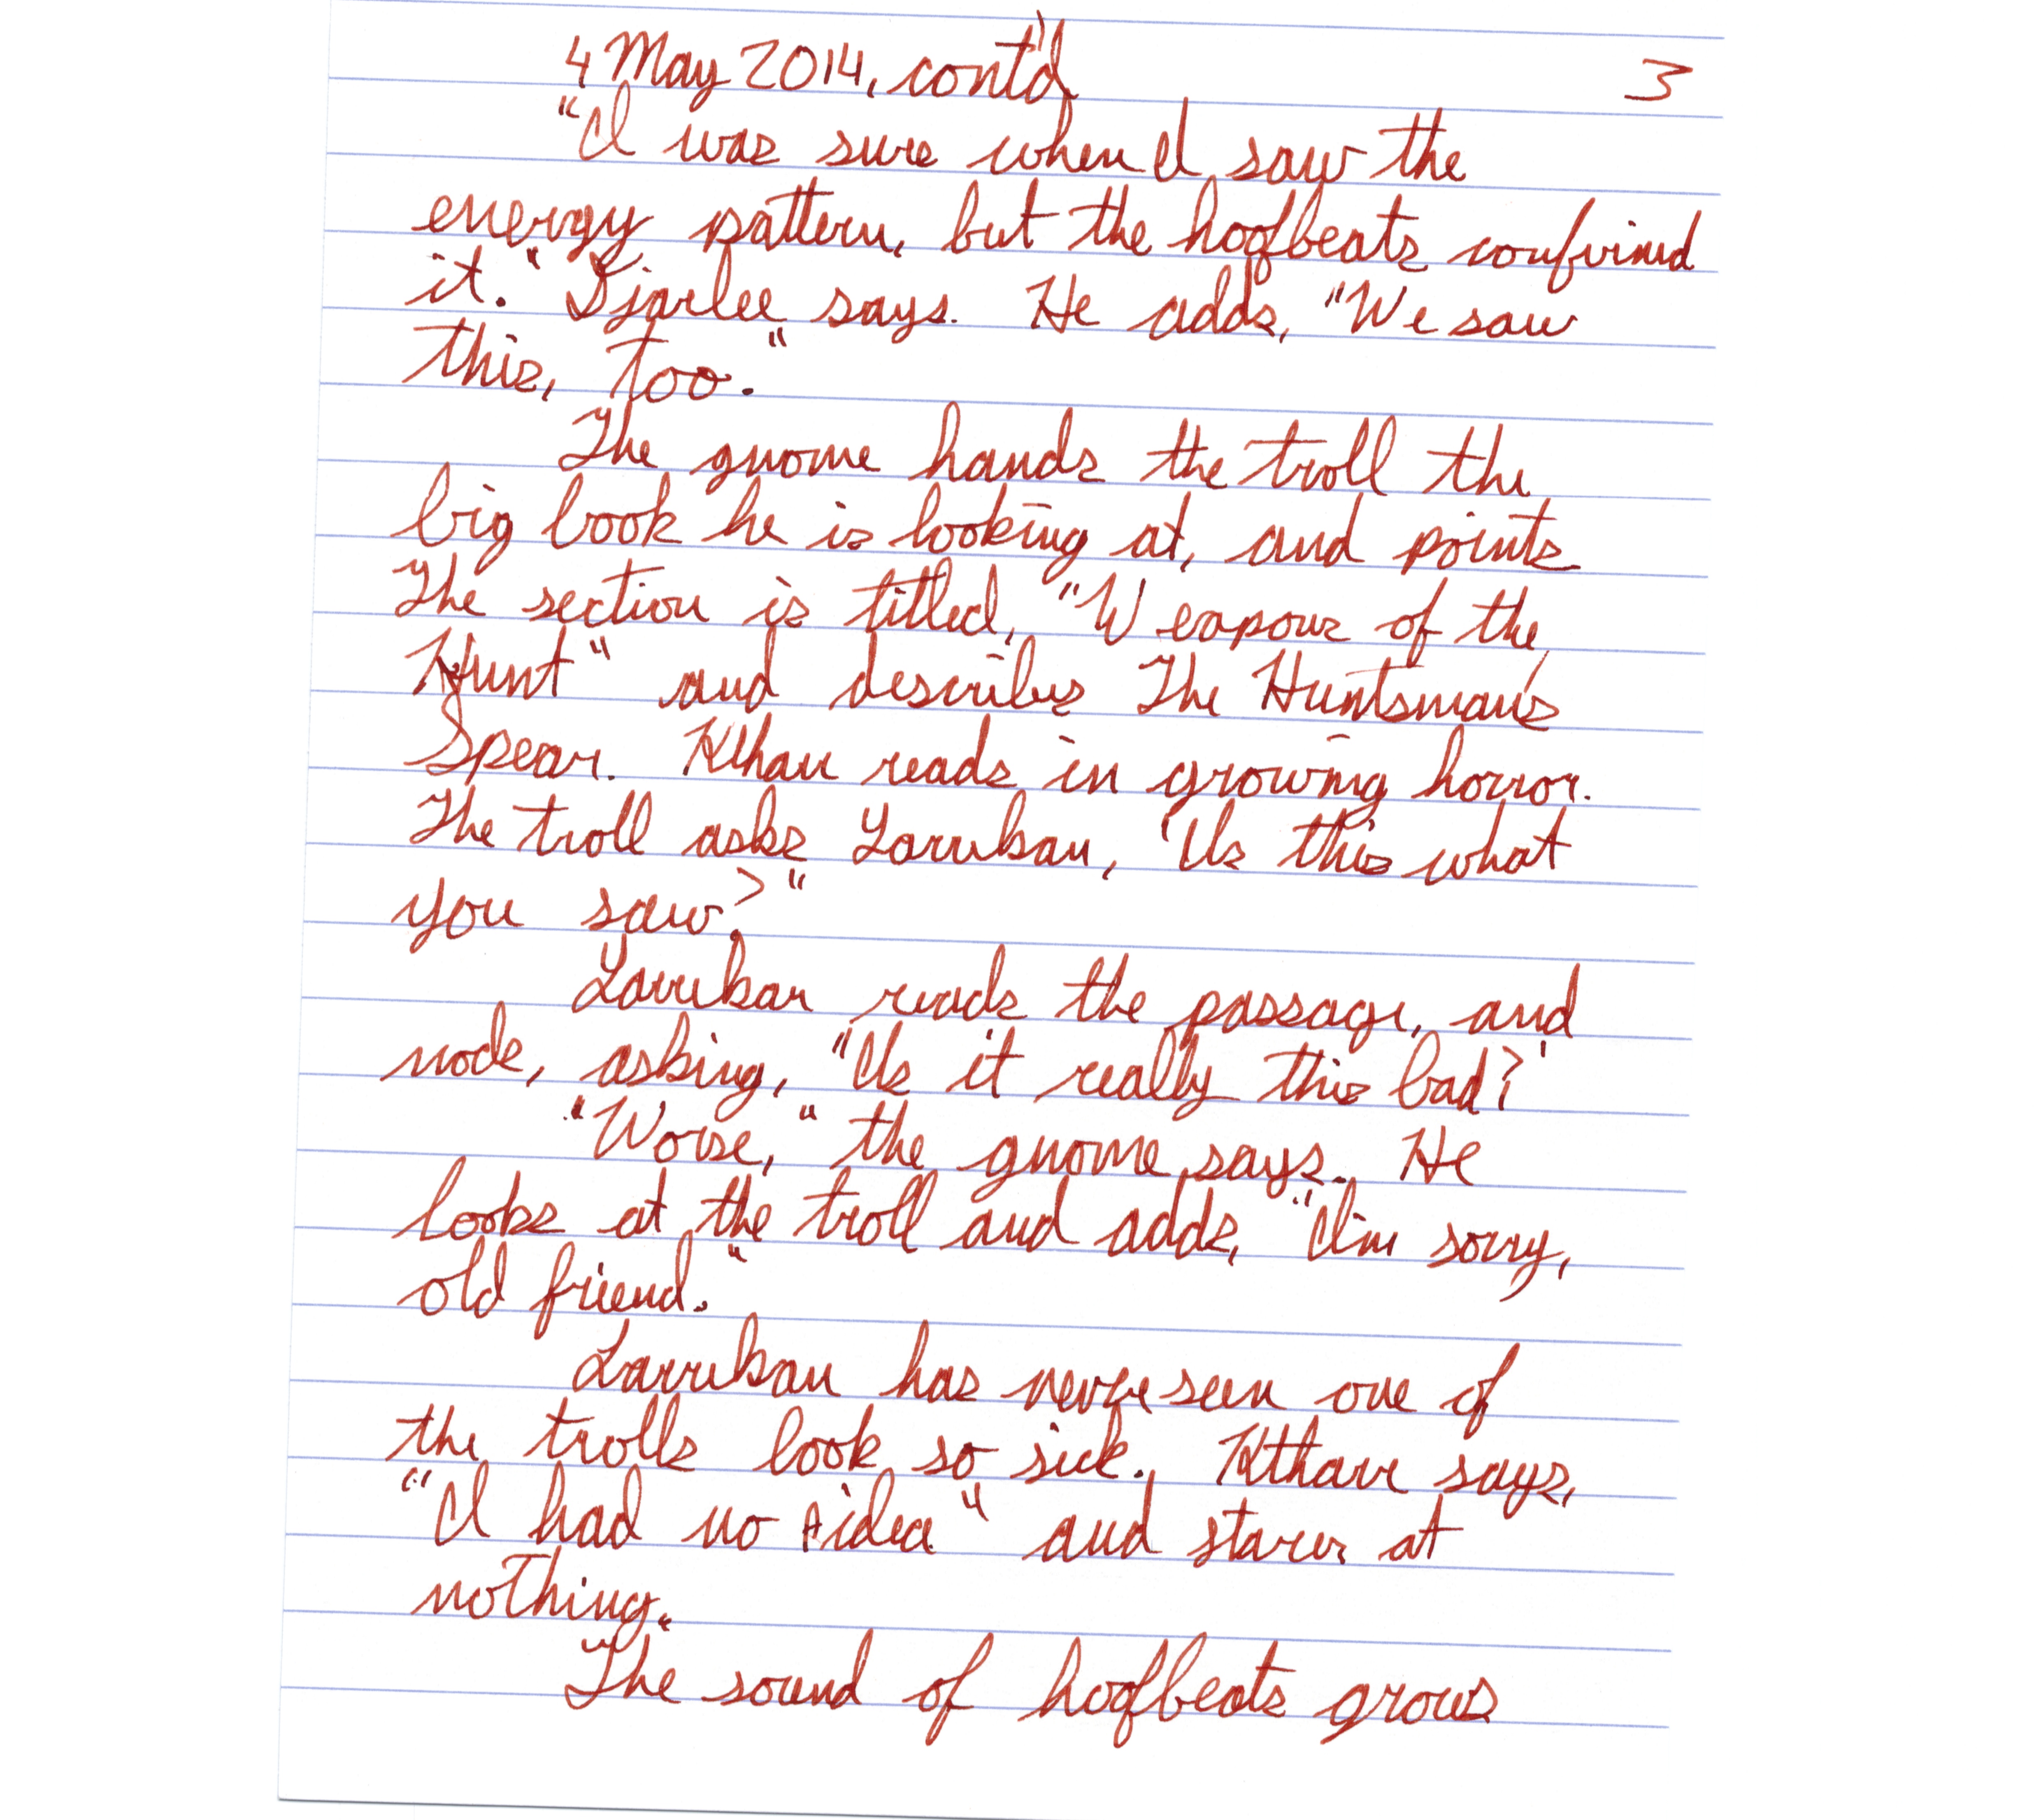 4 May 2014, cont'd 3
"I was sure when I saw the
energy pattern, but the hoofbeats confirmed
it." Djarlee says. He adds, "We saw
this, too."
The gnome hands the troll the
big book he is looking at, and points.
The section is titled, "Weapons of the
Hunt" and describes The Huntsman's
Spear. Kthan reads in growing horror.
The troll asks Larukan, "Is this what
you saw?"
Larukan reads the passage, and
nods, asking, "Is it really this bad?"
"Worse," the gnome says. He
looks at the troll and adds, "I'm sorry,
old friend."
Larukan has never seen one of
the trolls look so sick. Kthan says,
"I had no idea" and stares at
nothing.
The sound of hoofbeats grows